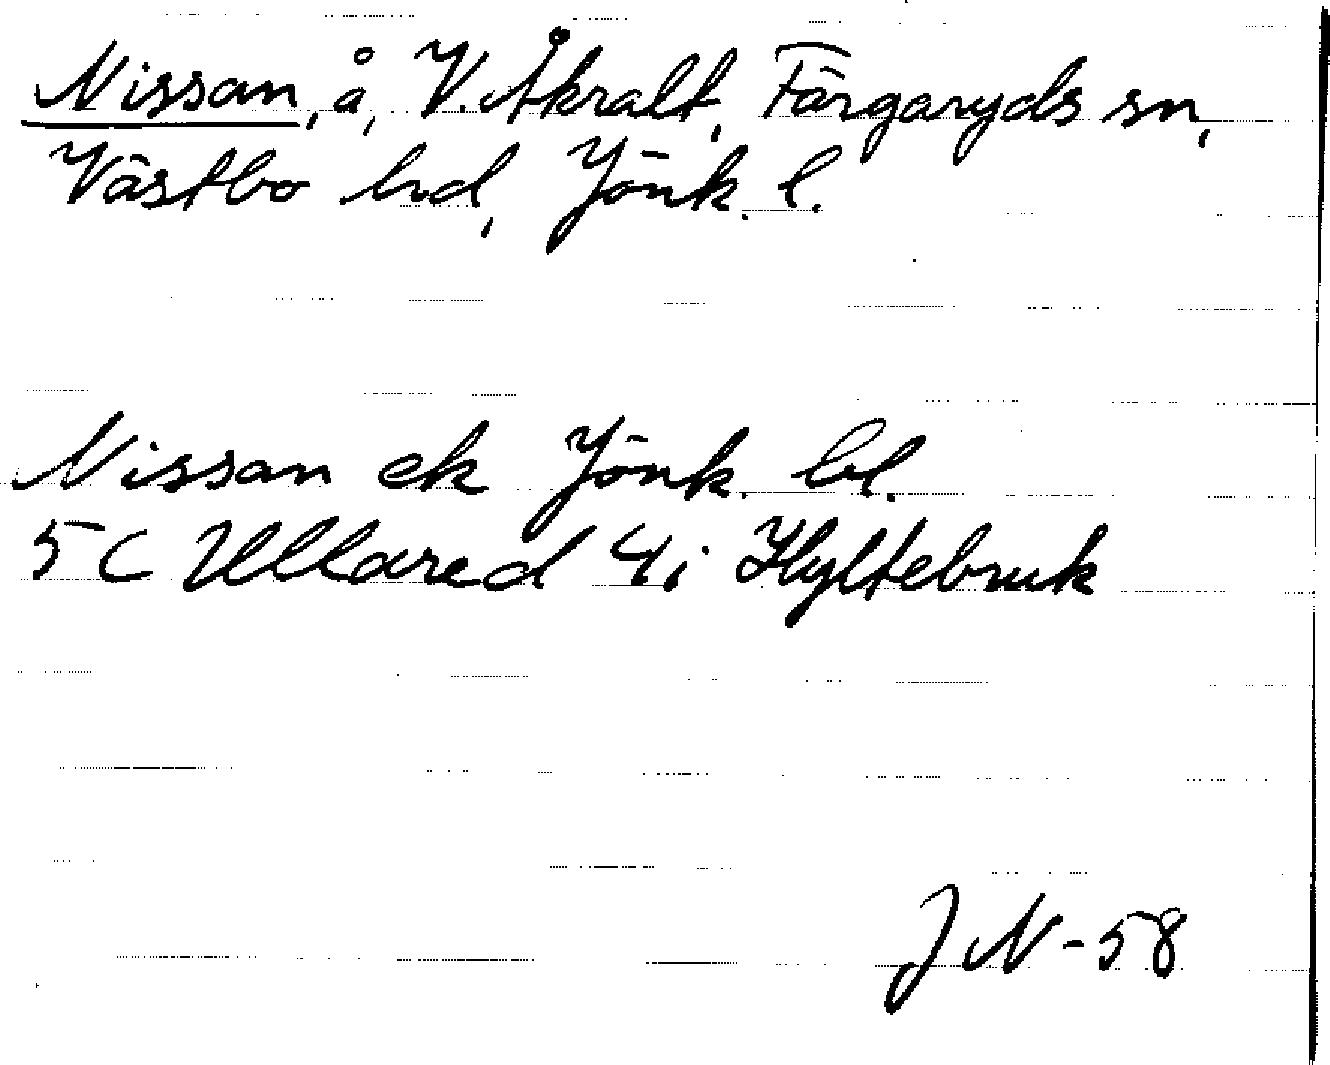 Nissan, å, V. Åkralt, Färgaryds sn,
Västbo hd, Jönk. l.
Nissan ek Jönk. bl.
5C Ullared 4i Hyltebruk
JN-58